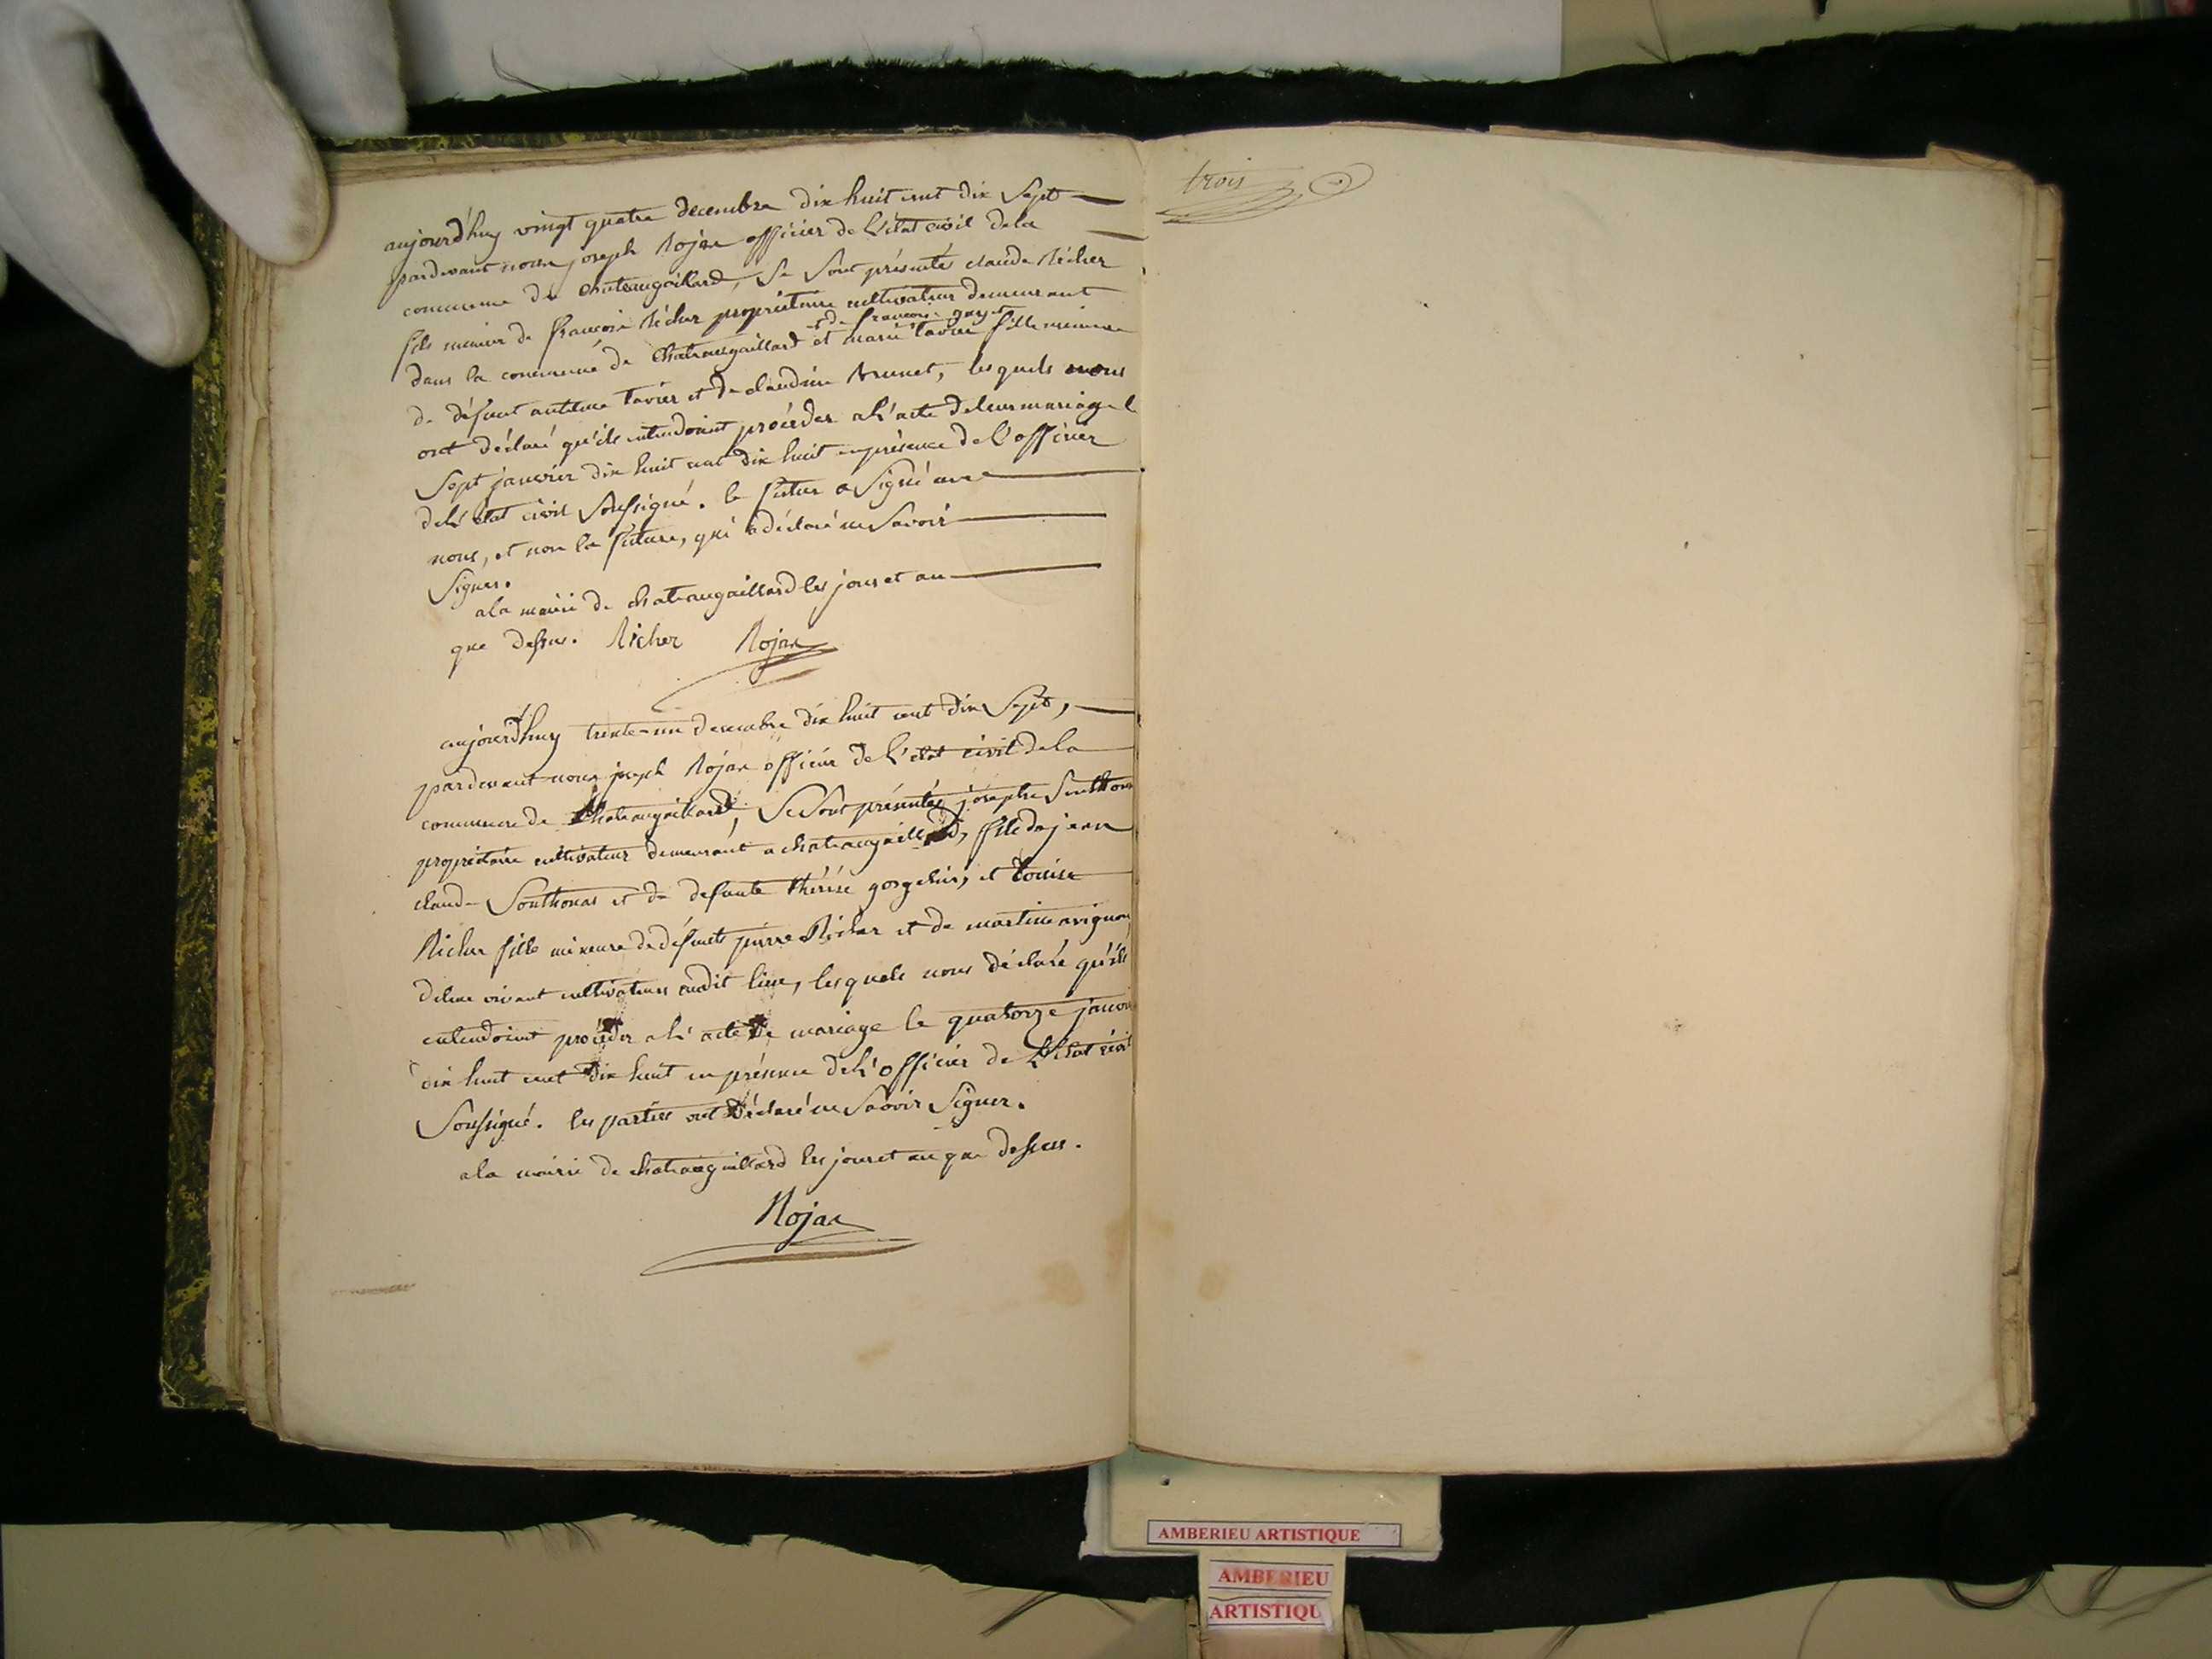 aujourd'huy vingt quatre decembre dix huit cent dix sept
pardevant nous joseph Rojar officier de l'état civil dela
commune de chateaugaillard, se sont présentés claude Richer
fils mineur de françois Richer propriétaire cultivateur demeurant
et de françoise
dans la commune de chateaugaillard et marie Tavier fille mineure
de défunt antelme Tavier et de claudine Brunet, lesquels nous
ont déclaré qu'ils entendoient procéder a l'acte de leur mariage le
sept janvier dix huit cent dix huit en présence de l'officier
del'état civil soussigné. le futur a signé avec
nous, et non la future, qui a déclaré ne savoir
signer.
ala mairie de chateaugaillard les jour et an
que dessus. Richer Rojar
aujourd'huy trente-un decembre dix huit cent dix sept,
pardevant nous joseph Rojar officier de l'état civil dela
commune de chateaugaillard, se sont présentés joseph Southonas
propriétaire cultivateur demeurant a chateaugaillard, fils de jean
claude Southonas et de defunte thérèse, et Louise
Richer fille mineure de défunts pierre Richer et de martine avignon
de leur vivant cultivateurs audit lieu, lesquels nous déclaré qu'ils
entendoient procéder a l'acte de mariage le quatorze janvier
dix huit cent dix huit en présence de l'officier de l'état civil
soussigné. les parties ont déclaré ne savoir signer.
ala mairie de chateaugaillard les jour et an que dessus.
Rojar
trois
AMBERIEU ARTISTIQUE
AMBERIEU
ARTISTIQU